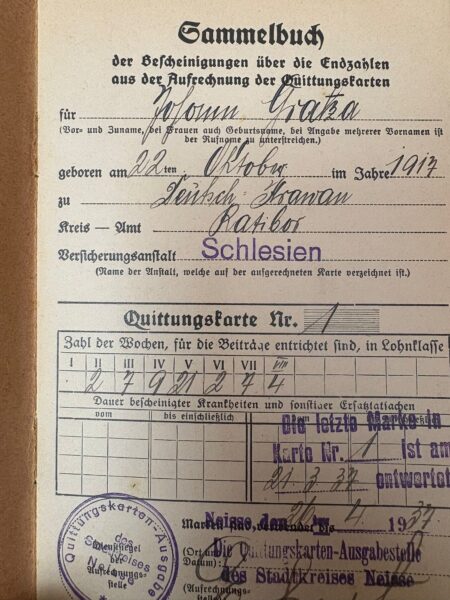 Sammelbuch
der Bescheinigungen über die Endzahlen
aus der Aufrechnung der Quittungskarten
für Johann Gratza
(Vor- und Zuname, bei Frauen auch Geburtsname, bei Angabe mehrerer Vornamen ist
der Rufname zu unterstreichen.)
geboren am 22ten Oktober im Jahre 1917
zu Deutsch-Krawarn
Kreis — Amt Ratibor
Versicherungsanstalt Schlesien
(Name der Anstalt, welche auf der aufgerechneten Karte verzeichnet ist.)
Quittungskarte Nr. 1
Zahl der Wochen, für die Beiträge entrichtet sind, in Lohnklasse
I II III IV V VI VII VIII
2 7 9 21 2 7 4
Dauer bescheinigter Krankheiten und sonstiger Ersatztatsachen
vom bis einschließlich
Die letzte Marke in
Karte Nr. 1 ist am
21 3 37 entwertet
Neisse, den 26. 4. 1937
(Ort und
Datum):
Die Quittungskarten-Ausgabestelle
des Stadtkreises Neisse
Quittungskarten-Ausgabe
des
Stadtkreises
Neisse
Aufrechnungs-
stelle